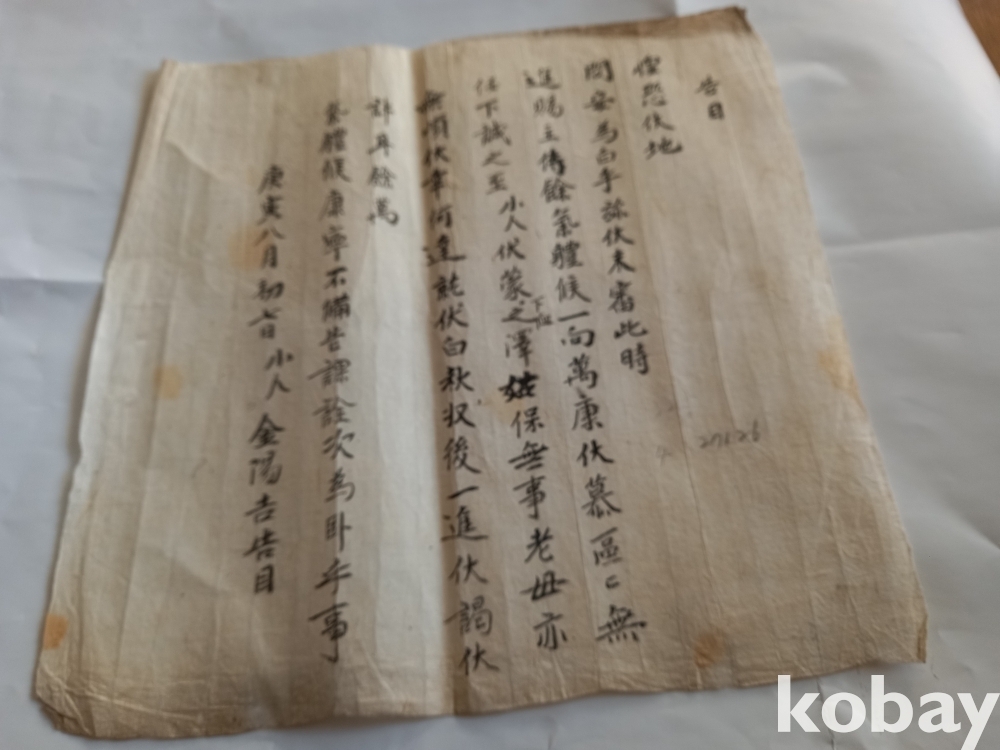 告目
惶恐伏地
問安爲白乎旀伏未審此時
進賜主傳餘氣體候一向萬康伏慕區〻無
任下誠之至小人伏蒙下仁之澤姑保無事老母亦
無頉伏幸何達就伏白秋收後一進伏謁伏
計耳餘萬
氣體候康寧不備告課詮次爲卧乎事
庚寅八月初七日小人金陽吉告目
27626
kobay